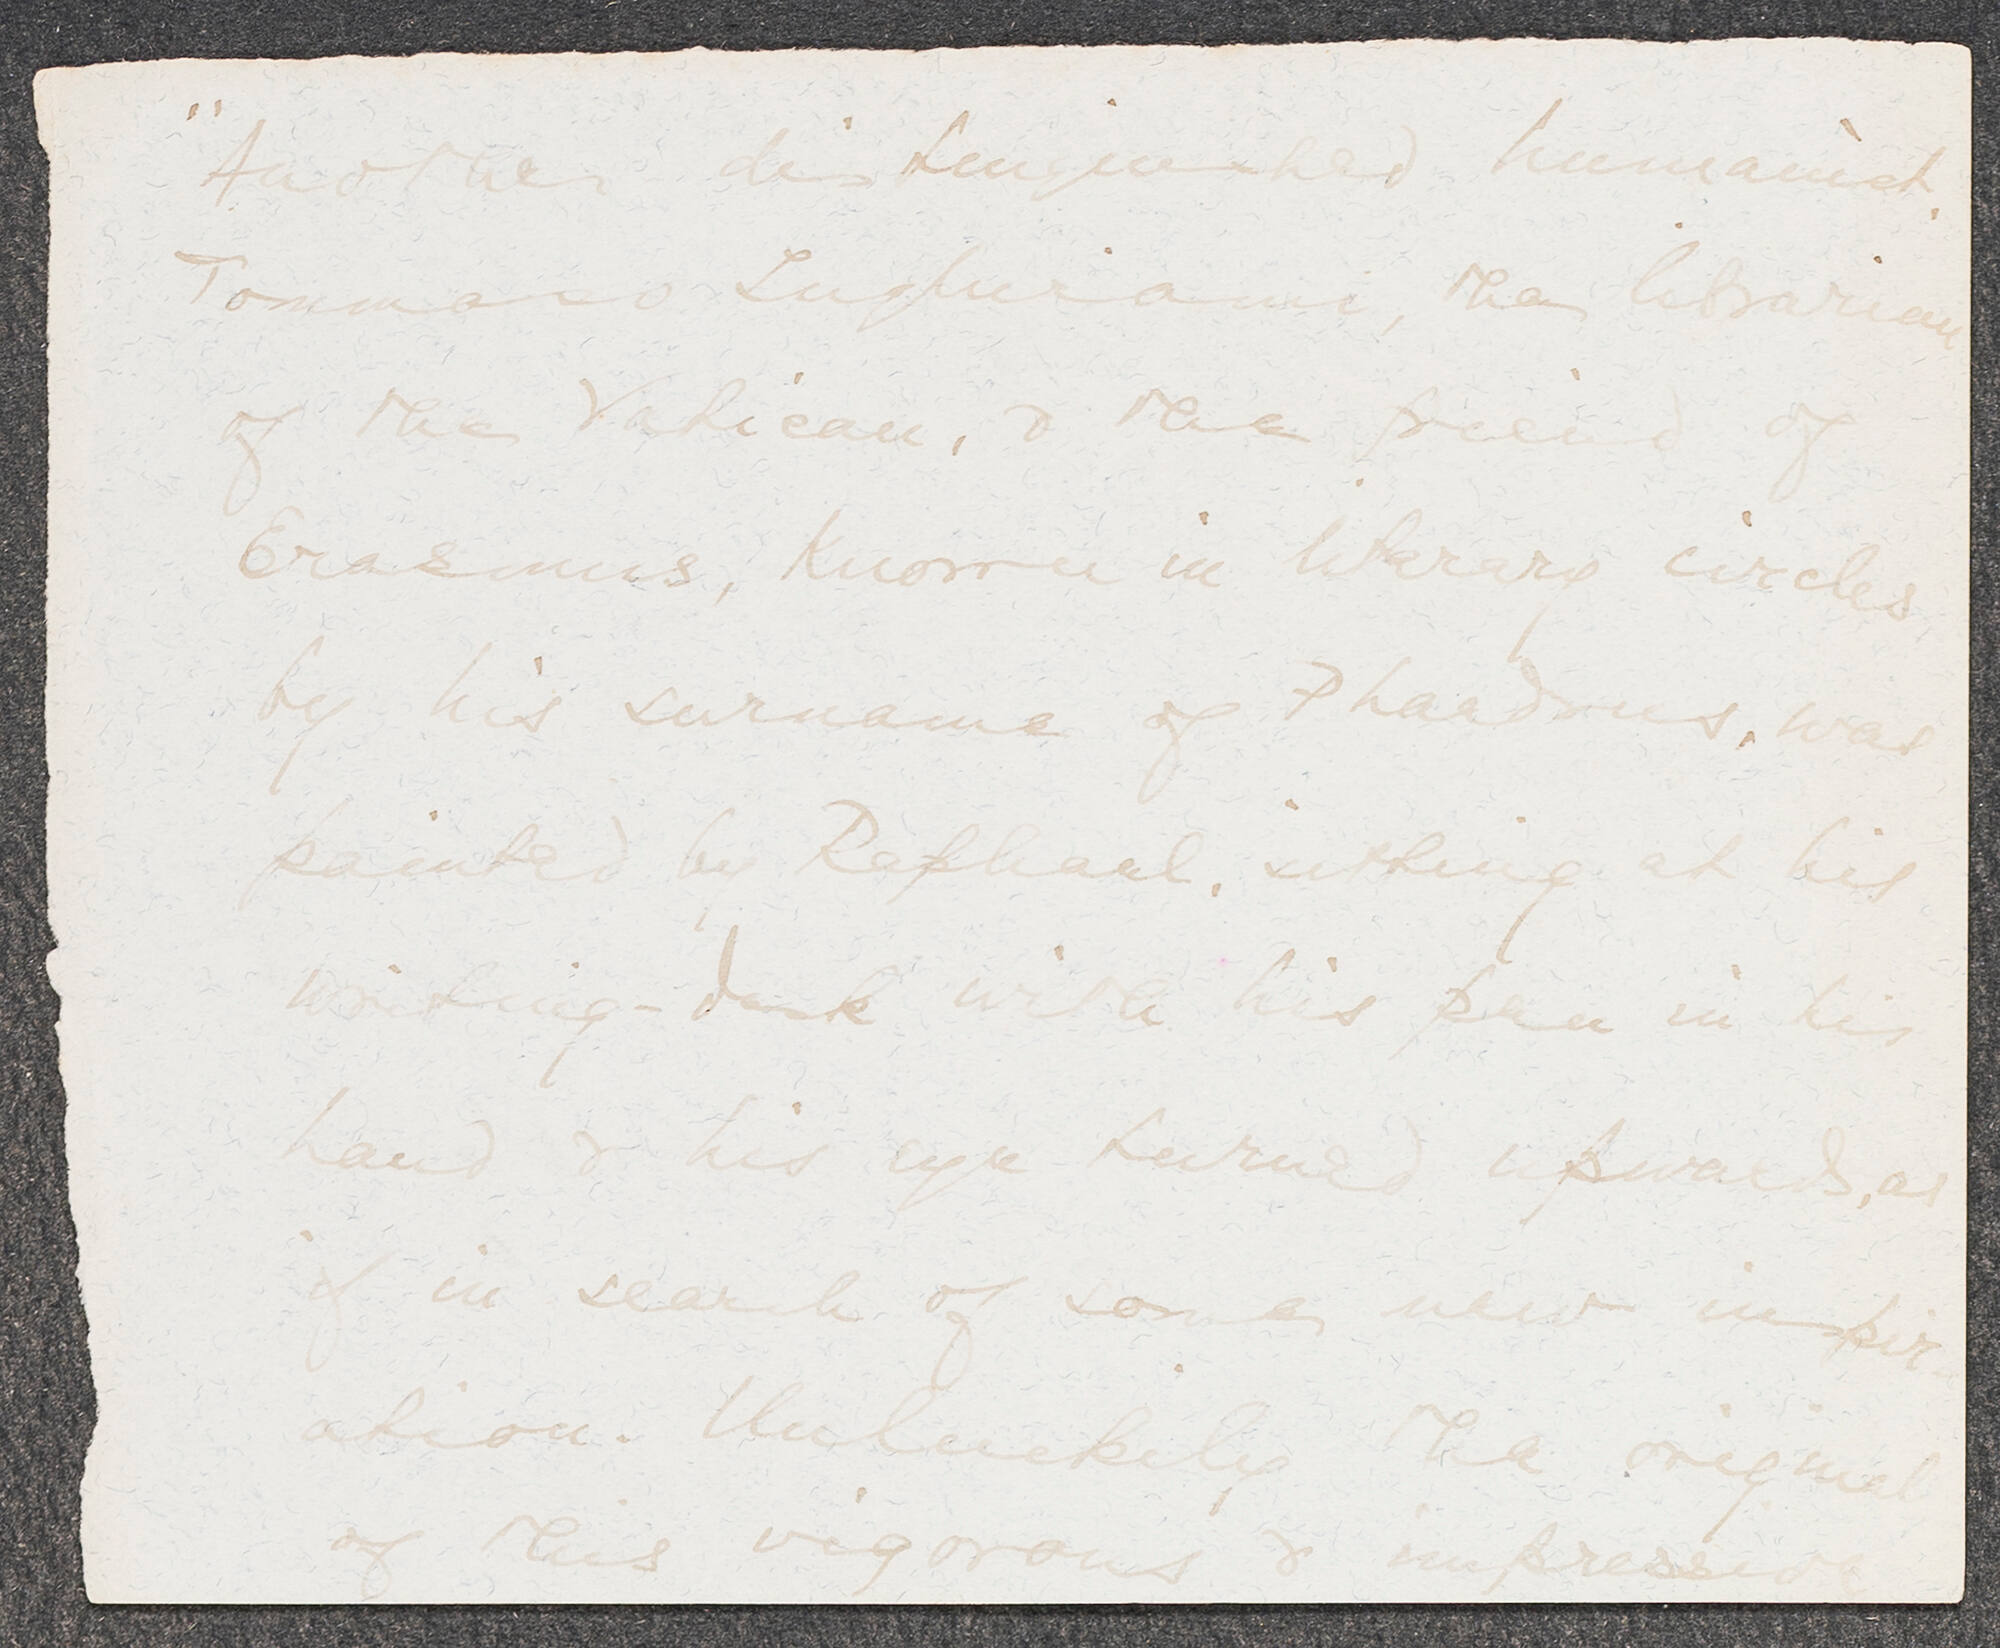 "Another distinguished humanist,
Tommaso Inghirami, the librarian
of the Vatican, & the friend of
Erasmus, known in literary circles
by his surname of Phaedrus, was
painted by Raphael, sitting at his
writing-desk with his pen in his
hand & his eye turned upwards, as
if in search of some new inspir-
ation. Unluckily the original
of this vigorous & impressive